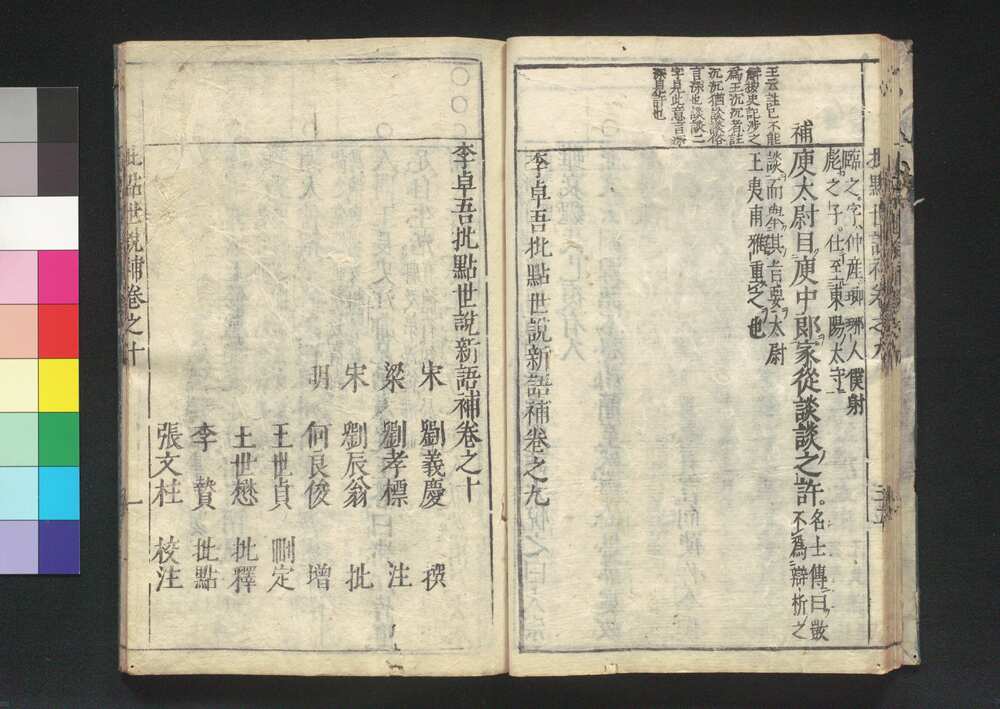 批點世說補卷之九
三五
臨之字仲産瑯琊人僕射
彪之子仕至東陽太守
補庾太尉目庾中郎家從談談之許
名士傳曰敳
不為辯析之
談而舉其旨要太尉
王夷甫雅重之也
王云註已不能
解按史記涉之
為王沉沉者註
沉沉猶談談俗
言深也談談二
字見此意言深
深見許也
李卓吾批點世說新語補卷之九
李卓吾批點世說新語補卷之十
宋 劉義慶 撰
梁 劉孝標 注
宋 劉辰翁 批
明 何良俊 增
王世貞 刪定
王世懋 批釋
李 贄 批點
張文柱 校注
批點世說補卷之十
一